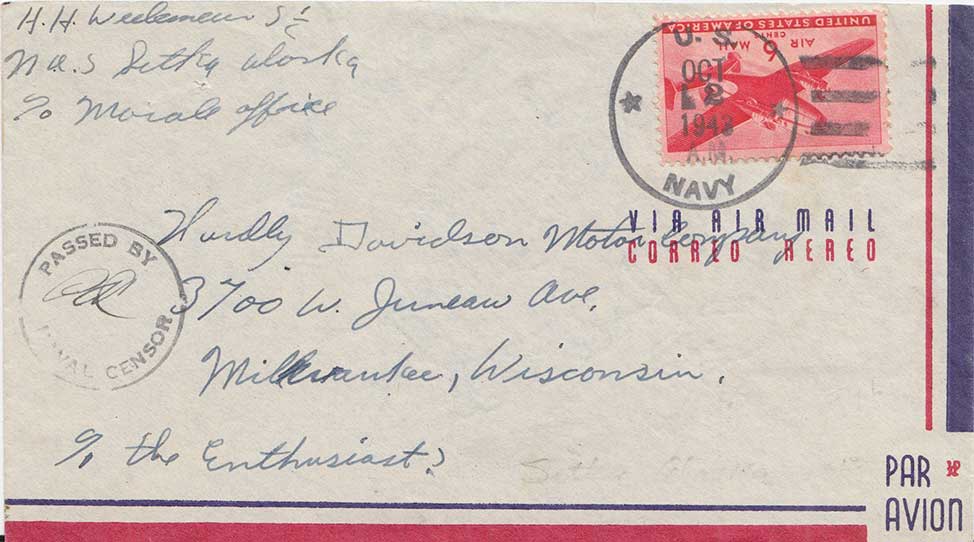 H. H.
N.A.S Sitka Alaska
% Morale office
UNITED STATES OF AMERICA
AIR MAIL
CENTS
U. S.
OCT
12
1943
A.M.
NAVY
VIA AIR MAIL
CORREO AEREO
PASSED BY
NAVAL CENSOR
Hardly Davidson Motor Company
3700 W. Juneau Ave.
Milwaukee, Wisconsin.
% the Enthusiast?
PAR
AVION